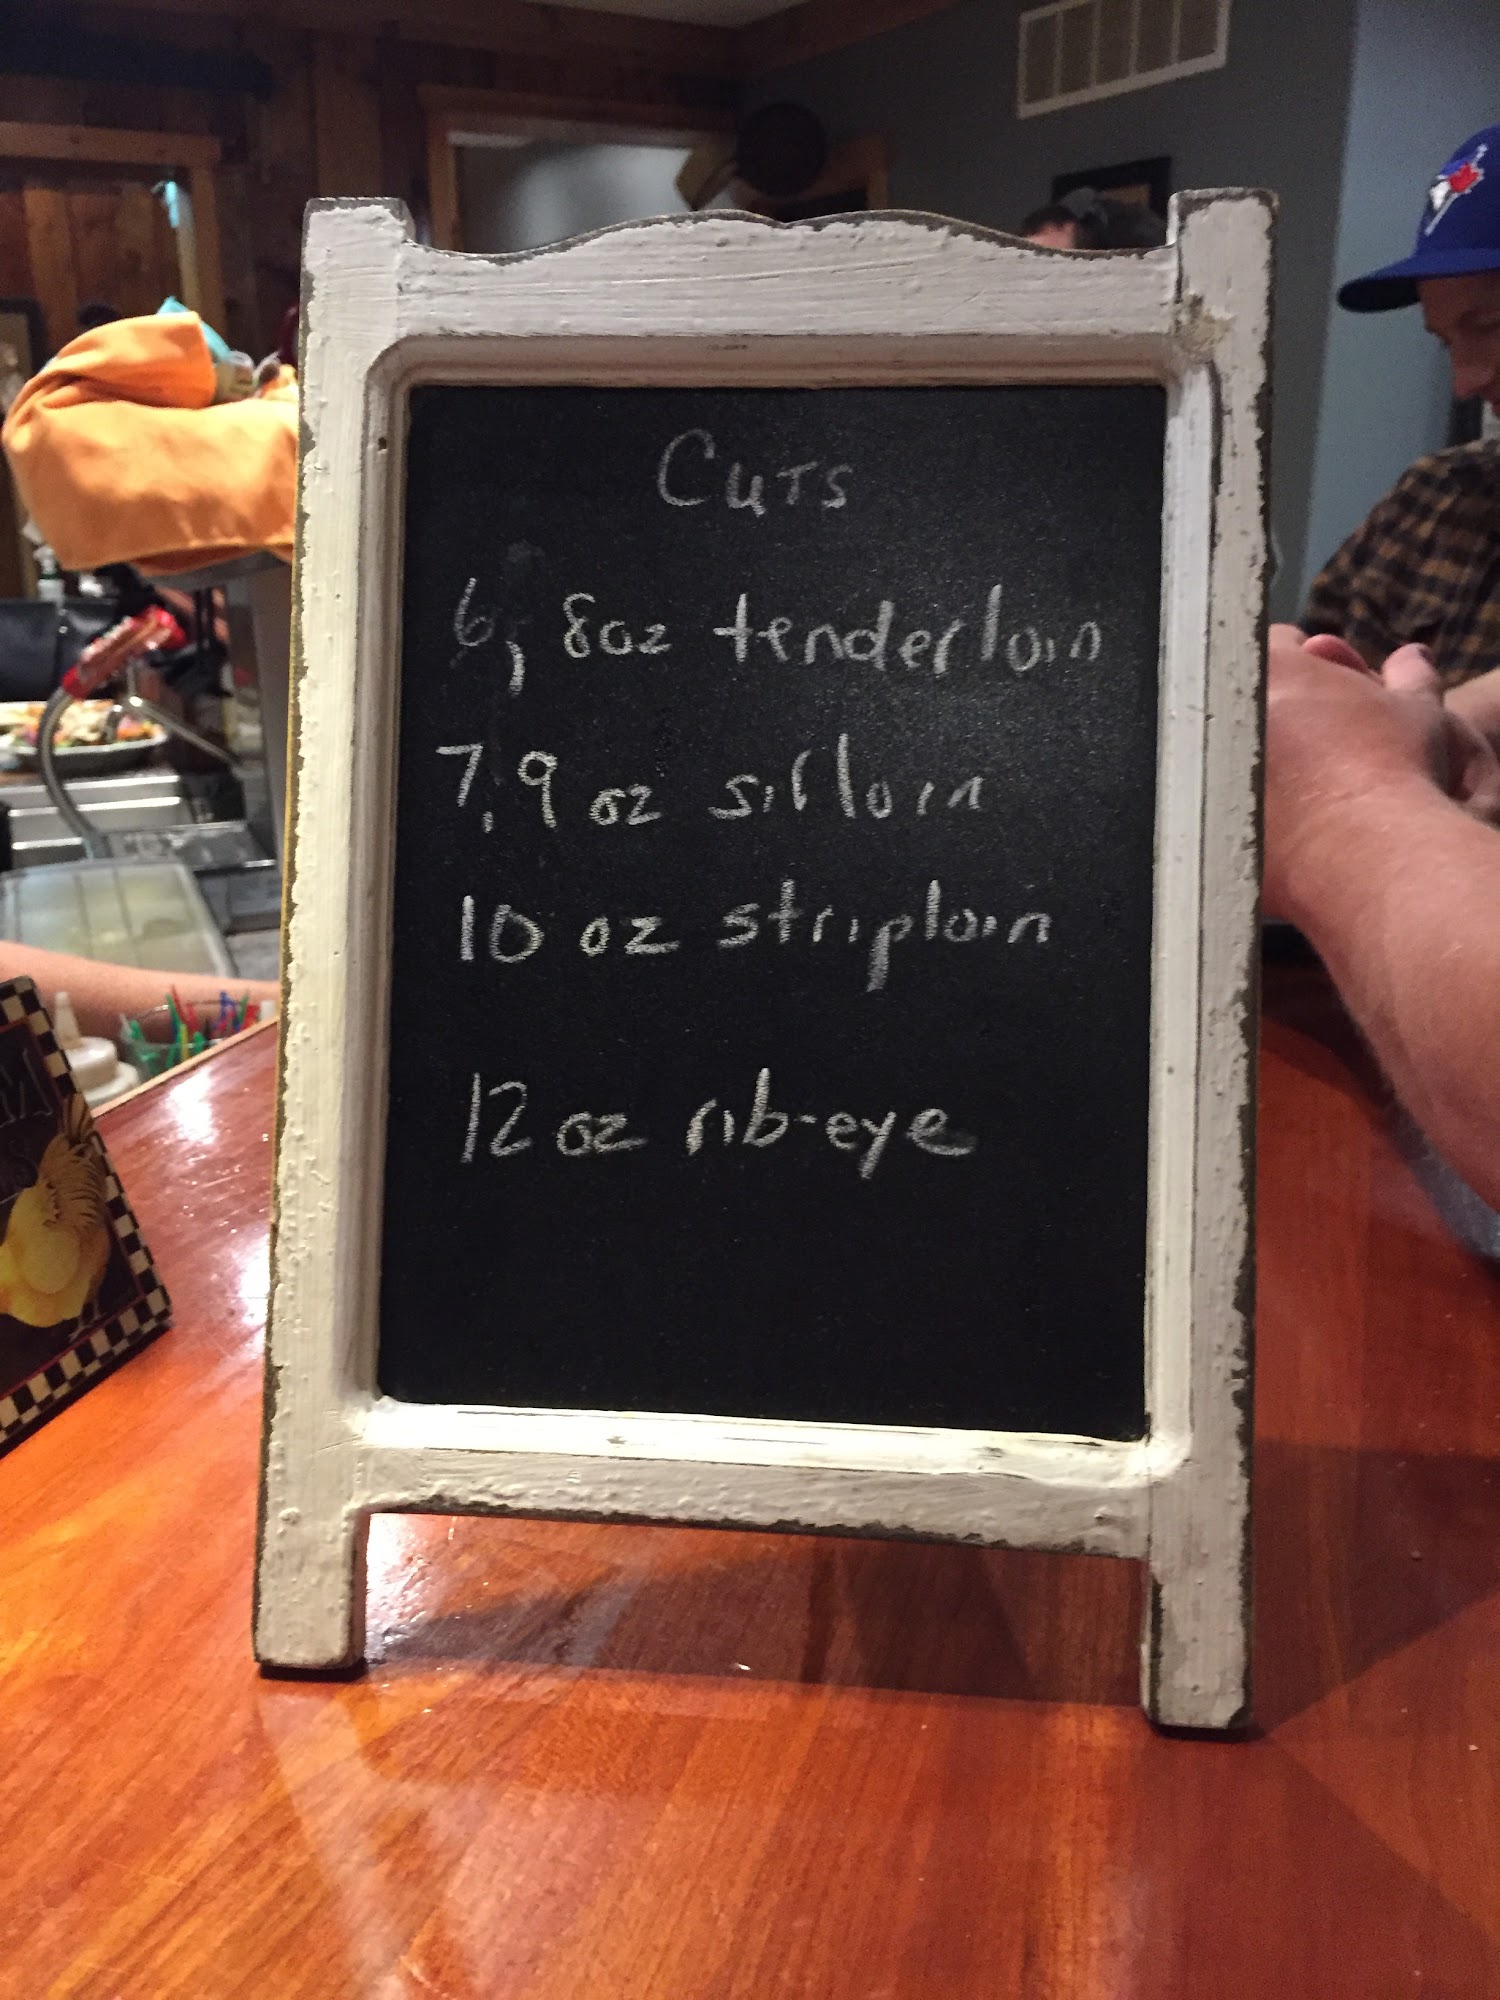 Cuts
6, 8oz tenderloin
7,9 oz sirloin
10 oz striploin
12 oz rib-eye